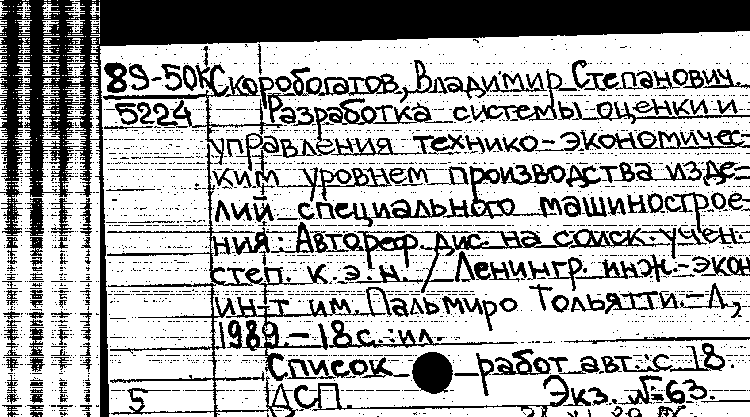 89-50К Скоробогатов, Владимир Степанович.
5224 Разработка системы оценки и
управления технико-экономичес-
ким уровнем производства изде-
лий специального машинострое-
ния: Автореф. дис. на соиск. учен.
степ. к. э. н. / Ленингр. инж.-экон.
ин-т им. Пальмиро Тольятти.-Л.,
1989.-18с.:ил.
Список работ авт.: с 18.
5 ДСП. Экз. №63.